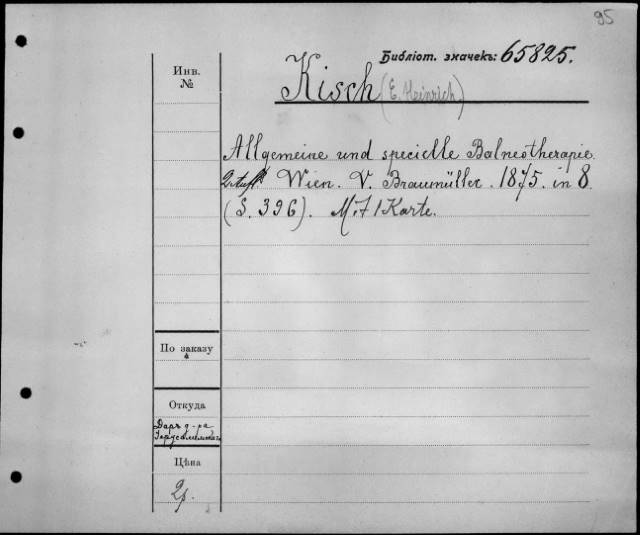 95
Библіот. значекъ: 65825.
Инв.
№
Kisch (E. Heinrich.)
Allgemeine und specielle Balneotherapie.
2te Aufl. Wien. V. Braumüller. 1875. in 8.
(S. 396). Mit 1 Karte.
По заказу
Откуда
Даръ д-ра
Цѣна
2р.